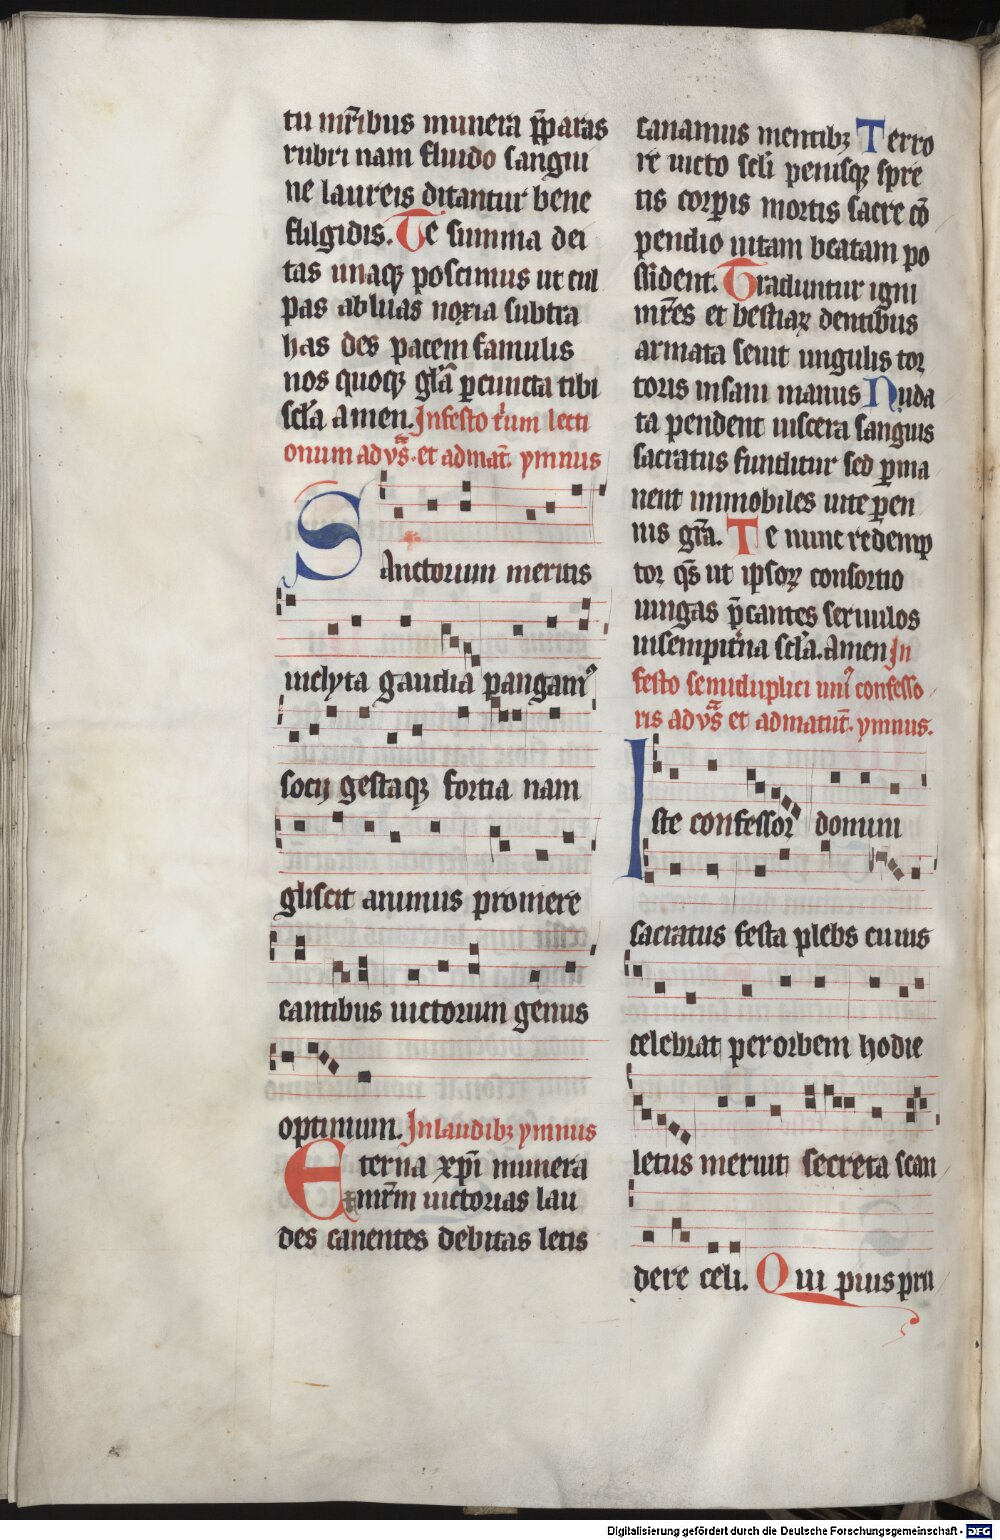 tu mr̄ibus munera p̄paras
rubri nam fluido sangui
ne laureis ditantur bene
fulgidis. Te summa dei
tas unaqꝫ poscimus ut cul
pas abluas noxia subtra
has des pacem famulis
nos quoqꝫ glā ꝑ cuncta tibi
scl̄a amen. In festo t̓um lecti
onum ad vs̄. et ad mat̄. ymnus
Sanctorum meritis
inclyta gaudia pangamꝰ
socij gestaqꝫ fortia nam
gliscit animus promere
cantibus uictorum genus
optimum. In laudibꝫ ymnus
Eterna xp̄i munera
et mr̄m uictorias lau
des canentes debitas letis
canamus mentibꝫ Terro
re uicto scl̄i penisqꝫ spre
tis corꝑis mortis sacre cō
pendio uitam beatam po
ssident. Traduntur igni
mr̄es et bestiaꝝ dentibus
armata seuit ungulis tor
toris insani manus Nuda
ta pendent uiscera sanguis
sacratus funditur sed ꝑma
nent immobiles uite ꝑen
nis grā. Te nunc redemp
tor qs̄ ut ipsoꝝ consortio
iungas p̄cantes seruulos
in sempit̓na scl̄a. Amen In
festo semiduplici uniꝰ confesso
ris ad vs̄ et ad matut̄. ymnus.
Iste confessor domini
sacratus festa plebs cuius
celebrat per orbem hodie
letus meruit secreta scan
dere celi. Qui pius pru
Digitalisierung gefördert durch die Deutsche Forschungsgemeinschaft - DFG